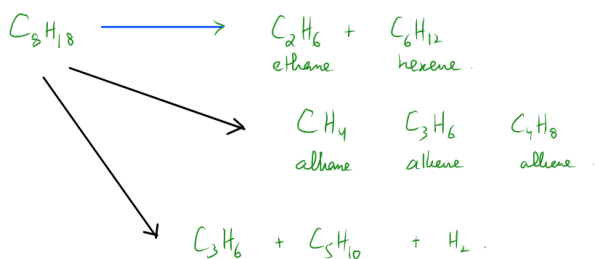 C₈H₁₈ → C₂H₆ + C₆H₁₂
ethane hexene.
CH₄ C₃H₆ C₄H₈
alkane alkene alkene.
C₃H₆ + C₅H₁₀ + H₂.